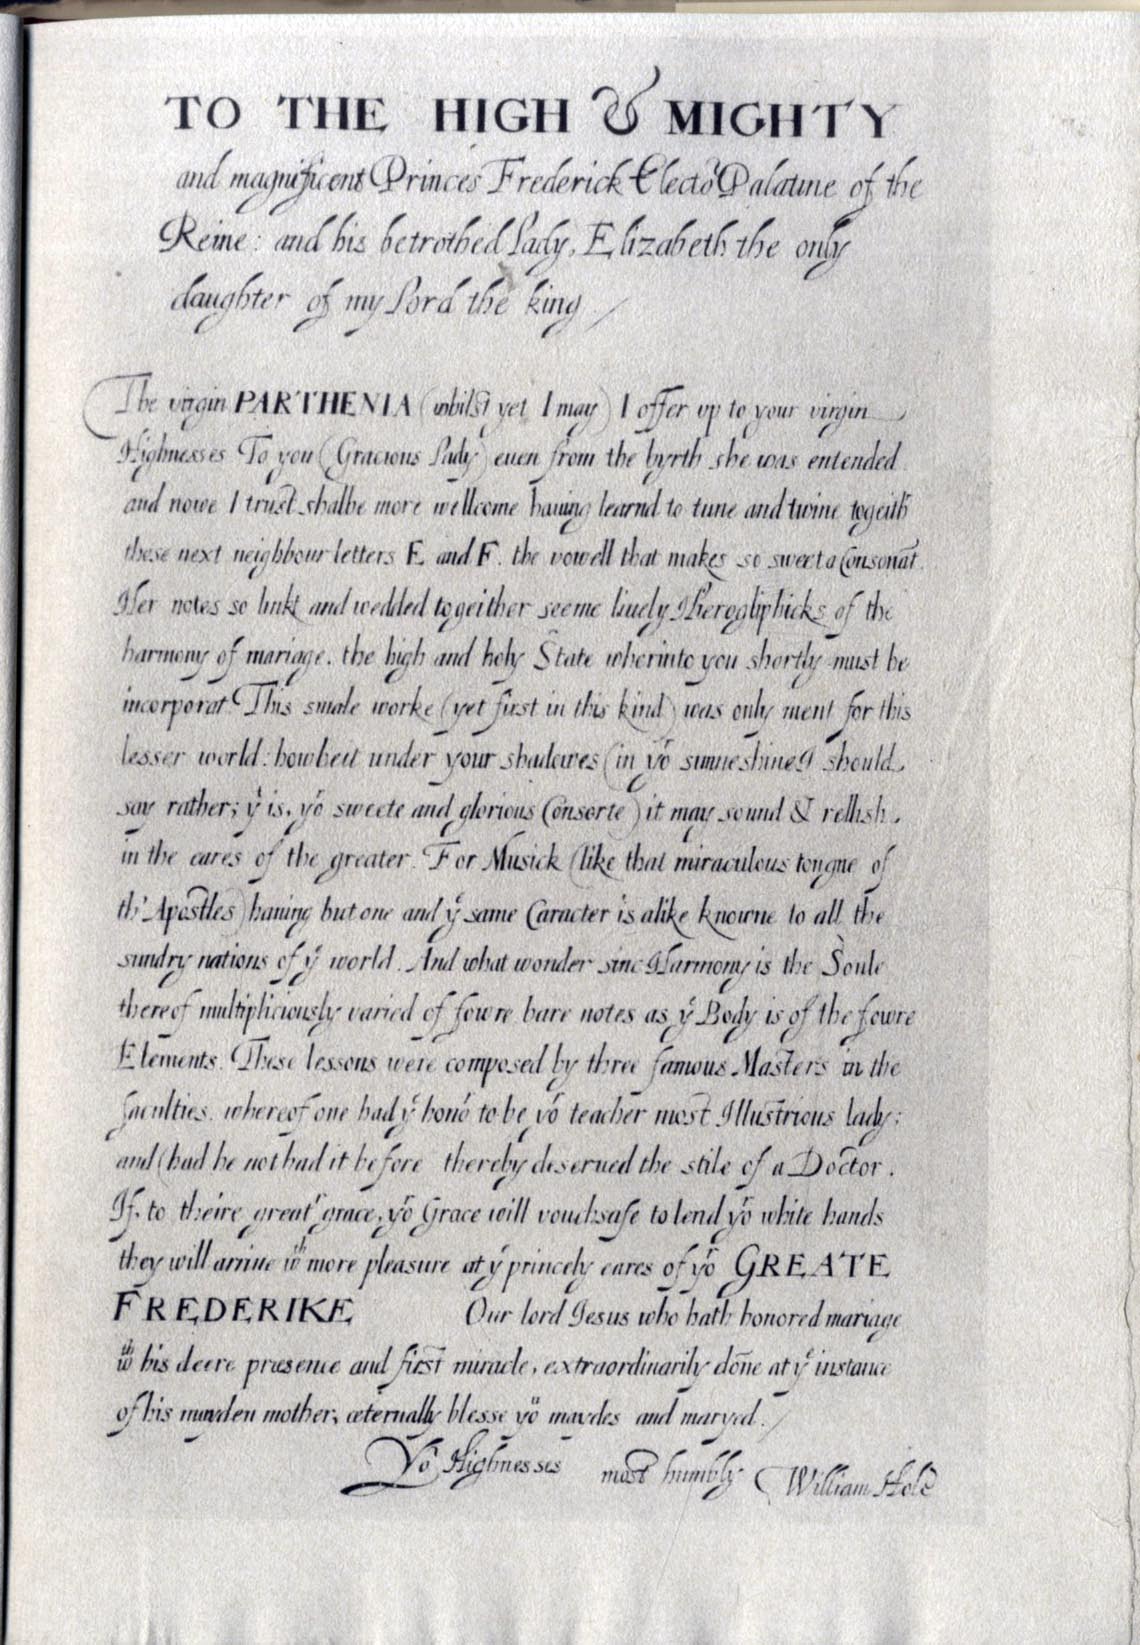 TO THE HIGH & MIGHTY
and magnificent Princes Frederick Elector Palatine of the
Reine: and his betrothed Lady, Elizabeth the only
daughter of my Lord the king /
The virgin PARTHENIA (whilst yet I may) I offer up to your virgin
Highnesses To you (Gracious Lady) euen from the byrth she was entended
and nowe I trust shalbe more wellcome hauing learnd to tune and twine togeith
these next neighbour letters E and F. the vowell that makes so sweet a Consonāt.
Her notes so linkt and wedded togeither seeme liuely Hierogliphicks of the
harmony of mariage. the high and holy State wherinto you shortly must be
incorporat. This smale worke (yet first in this kind) was only ment for this
lesser world: howbeit under your shadowes (in yor sunneshine I should
say rather; yt is, yor sweete and glorious Consorte) it may sound & rellish
in the eares of the greater. For Musick (like that miraculous tongue of
th' Apostles) hauing but one and ye same Caracter is alike knowne to all the
sundry nations of ye world. And what wonder sinc Harmony is the Soule
thereof multipliciously varied of fowre bare notes as ye Body is of the fowre
Elements. These lessons were composed by three famous Masters in the
faculties. whereof one had ye honor to be yor teacher most Illustrious lady;
and (had he not had it before thereby deserued the stile of a Doctor.
If, to theire greatr grace, yor Grace will vouchsafe to lend yor white hands
they will arriue wth more pleasure at ye princely eares of yor GREATE
FREDERIKE Our lord Jesus who hath honored mariage
wth his deere præsence and first miracle, extraordinarily dōne at ye instance
of his mayden mother; æternally blesse you maydes and maryed. /
Yor Highnesses most humbly William Hole